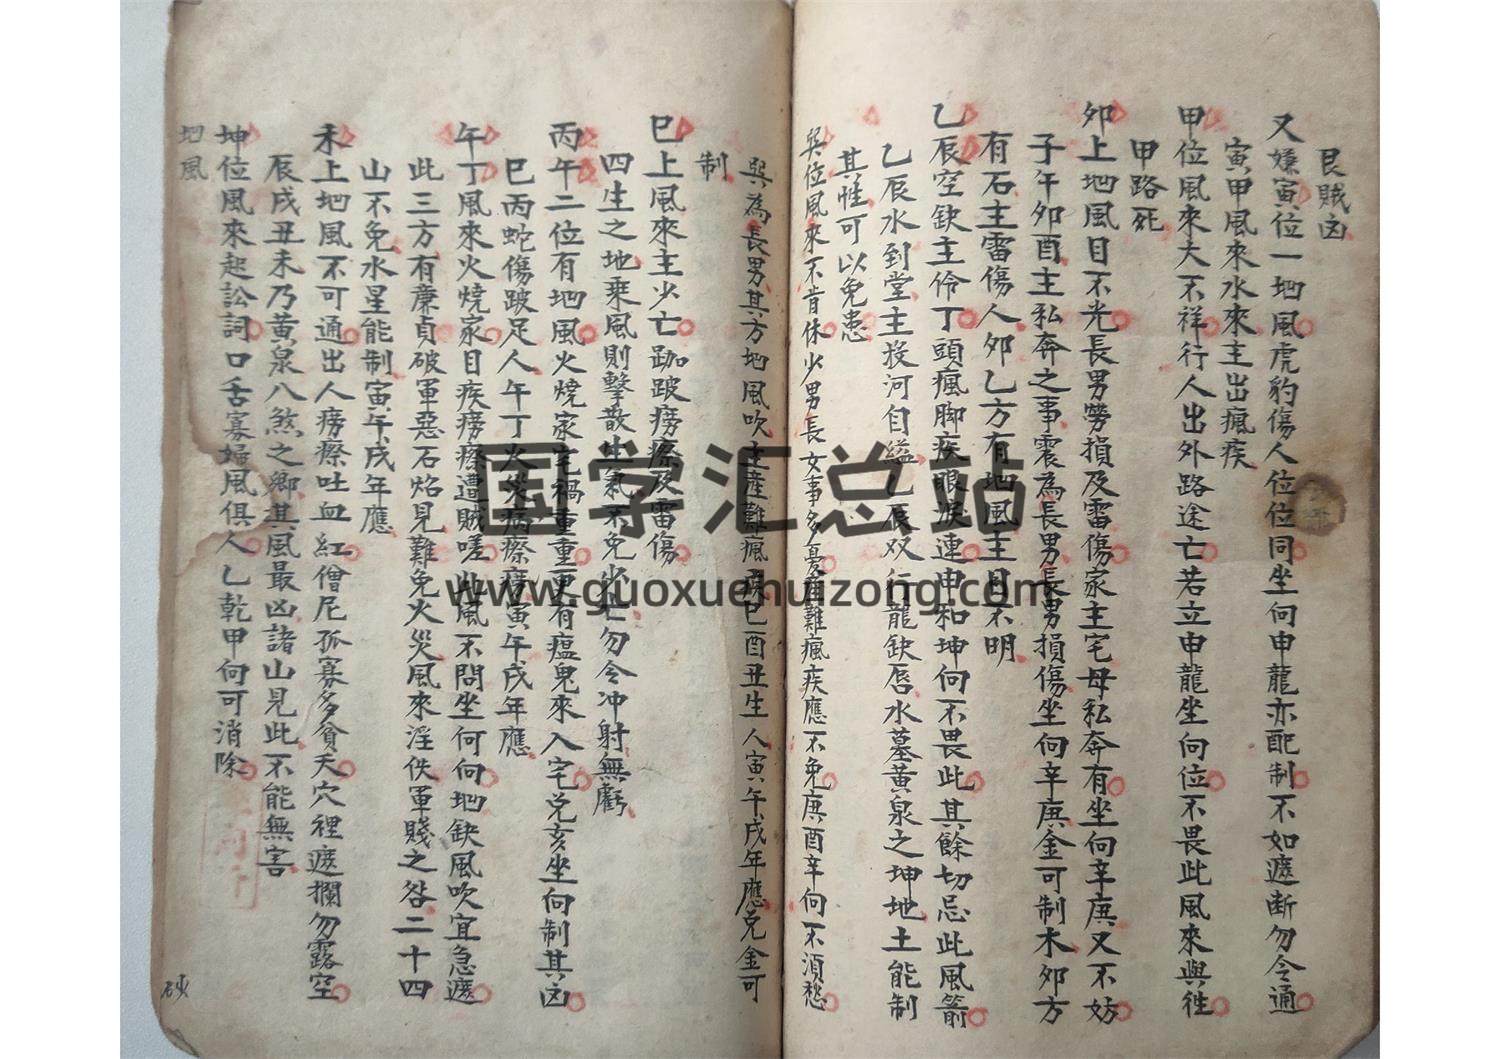 艮賊凶
又嫌寅位一地風虎豹傷人位位同坐向申龍亦配制不如遮断勿令通
寅甲風來水來主出瘋疾
甲位風來大不祥行人出外路途亡若立申龍坐向位不畏此風來與徃
甲路死
夘上地風目不光長男勞損及雷傷家主宅母私奔有坐向辛庚又不妨
子午夘酉主私奔之事震為長男長男損傷坐向辛庚金可制木夘方
有石主雷傷人夘乙方有地風主目不明
乙辰空缺主伶丁頭瘋脚疾眼淚連申和坤向不畏此其餘切忌此風箭
乙辰水到堂主投河自縊乙辰双行龍缺唇水墓黃泉之坤地土能制
其性可以免患
巽位風來不肯休少男長女事多憂産難瘋疾應不免庚酉辛向不須愁
巽為長男其方地風吹主産難瘋疾巳酉丑生人寅午戌年應兌金可
制
巳上風來主少亡跏跛癆瘵及雷傷
四生之地乗風則擊散生氣不免少亡勿令冲射無虧
丙午二位有地風火燒家宅禍重重更有瘟鬼來入宅兌亥坐向制其凶
巳丙蛇傷跛足人午丁火災病瘵癆寅午戌年應
午丁風來火燒家目疾癆瘵遭賊嗟此風不問坐何向地缺風吹宜急遮
此三方有亷貞破軍惡石焰見難免火災風來淫佚軍賤之咎二十四
山不免水星能制寅午戌年應
未上地風不可通出人癆瘵吐血紅僧尼孤寡多貧夭穴裡遮攔勿露空
辰戌丑未乃黃泉八煞之鄉其風最凶諸山見此不能無害
坤位風來起訟詞口舌寡婦風俱人乙乾甲向可消除
地風
国学汇总站
www.guoxuehuizong.com